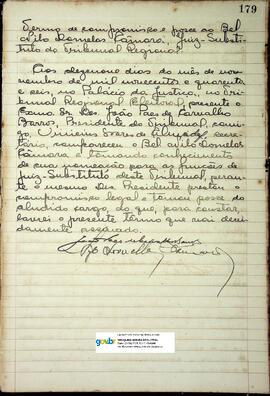 179
Termo de compromisso e posse ao Bel
Avilo Dornelas Câmara, Juiz-Substi-
tuto do Tribunal Regional
Aos dezenove dias do mês de no-
vembro de mil novecentos e quarenta
e seis, no Palácio da Justiça, no Tri-
bunal Regional Eleitoral, presente o
Exmo. Sr. Des. João Paes de Carvalho
Barros, Presidente do Tribunal, comi-
go, Vinicius Soares de secre-
tário, compareceu o Bel Dornelas
Câmara e tomando conhecimento
de sua nomeação para a função de
Juiz-Substituto deste Tribunal, peran-
te o mesmo Des Presidente prestou o
compromisso legal e tomou posse do
aludido cargo, do que, para constar,
lavrei o presente termo que vai devi-
damente assinado.
govbr